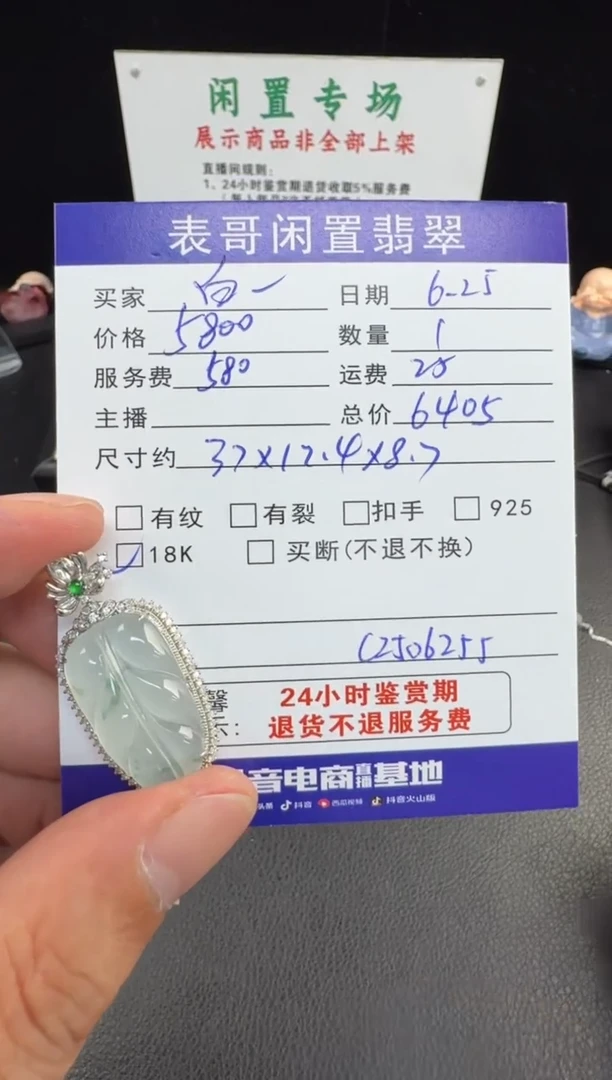 闲置专场
展示商品非全部上架
直播间规则:
1、24小时鉴赏期退货收取5%服务费
表哥闲置翡翠
买家 白一 日期 6-25
价格 5800 数量 1
服务费 580 运费 25
主播 总价 6405
尺寸约 37×17.4×8.7
有纹 有裂 扣手 925
18K 买断(不退不换)
C2506255
馨 24小时鉴赏期
示: 退货不退服务费
音电商直播基地
头条 抖音 西瓜视频 抖音火山版